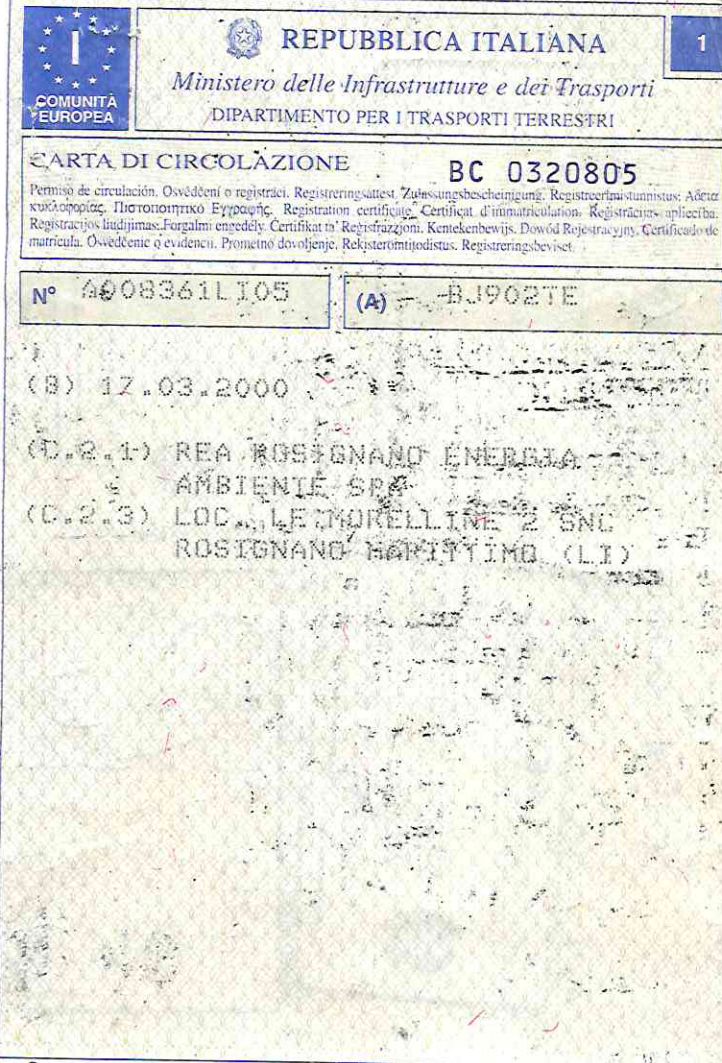 I
COMUNITÀ
EUROPEA
REPUBBLICA ITALIANA
1
Ministero delle Infrastrutture e dei Trasporti
DIPARTIMENTO PER I TRASPORTI TERRESTRI
CARTA DI CIRCOLAZIONE BC 0320805
Permiso de circulación. Osvědčení o registraci. Registreringsattest. Zulassungsbescheinigung. Registreerimistunnistus. Άδεια
κυκλοφορίας. Πιστοποιητικό Εγγραφής. Registration certificate. Certificat d'immatriculation. Reģistrācijas apliecība.
Registracijos liudijimas. Forgalmi engedély. Ċertifikat ta' Reġistrazzjoni. Kentekenbewijs. Dowód Rejestracyjny. Certificado de
matrícula. Osvedčenie o evidencii. Prometno dovoljenje. Rekisteröintitodistus. Registreringsbeviset.
N° A008361LI05 (A) BJ902TE
(B) 17.03.2000
(C.2.1) REA ROSIGNANO ENERGIA
AMBIENTE SPA
(C.2.3) LOC. LE MORELLINE 2 SNC
ROSIGNANO MARITTIMO (LI)